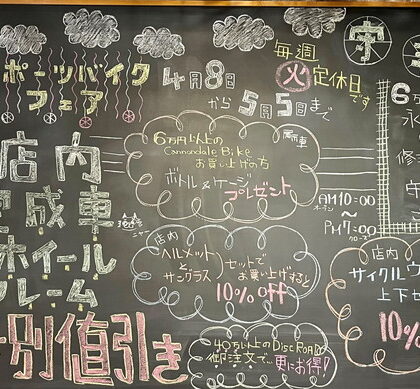 ポーツバイク
フェア
4月8日
から5月5日まで
毎週
火定休日です
守
店内
成車
ホイール
フレーム
別値引き
6万円以上の
Cannondale Bike
お買い上げの方
ボトル&ケージ
プレゼント
AM10:00
オープン
〜
PM7:00
クローズ
店内
ヘルメット
と
サングラス
セットで
お買い上げすると
10% OFF
40万以上のDisc ROADの
御注文で…更にお得!
店内
サイクルウ
上下セ
10%